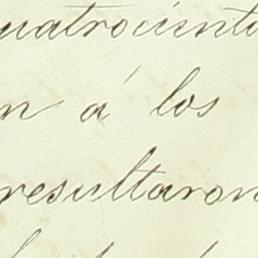 cuatrocienta
n á los
resultaron